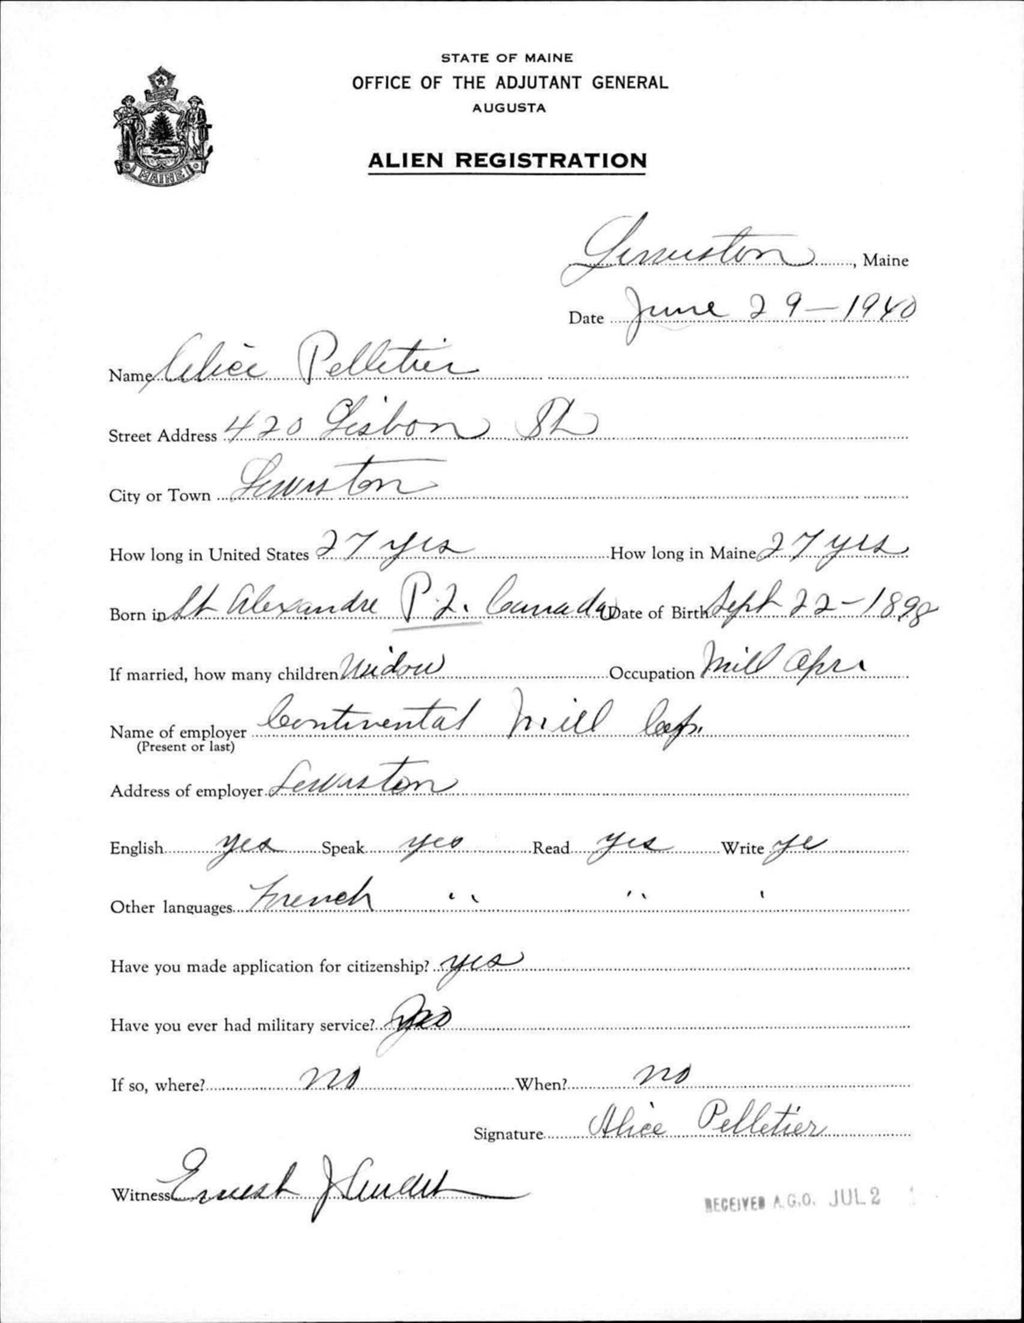 STATE OF MAINE
OFFICE OF THE ADJUTANT GENERAL
AUGUSTA
MAINE
ALIEN REGISTRATION
Lewiston, Maine
Date June 29-1940
Name Alice Pelletier
Street Address 420 Lisbon St
City or Town Lewiston
How long in United States 27 yrs How long in Maine 27 yrs
Born in St Alexandre P.Q. Canada Date of Birth Sept 22-1898
If married, how many children Widow Occupation Mill Opr.
Name of employer Continental Mill Corp.
(Present or last)
Address of employer Lewiston
English yes Speak yes Read yes Write ye
Other languages French " " '
Have you made application for citizenship? yes
Have you ever had military service? No
If so, where? no When? no
Signature Alice Pelletier
Witness Ernest J
RECEIVED A.G.O. JUL 2